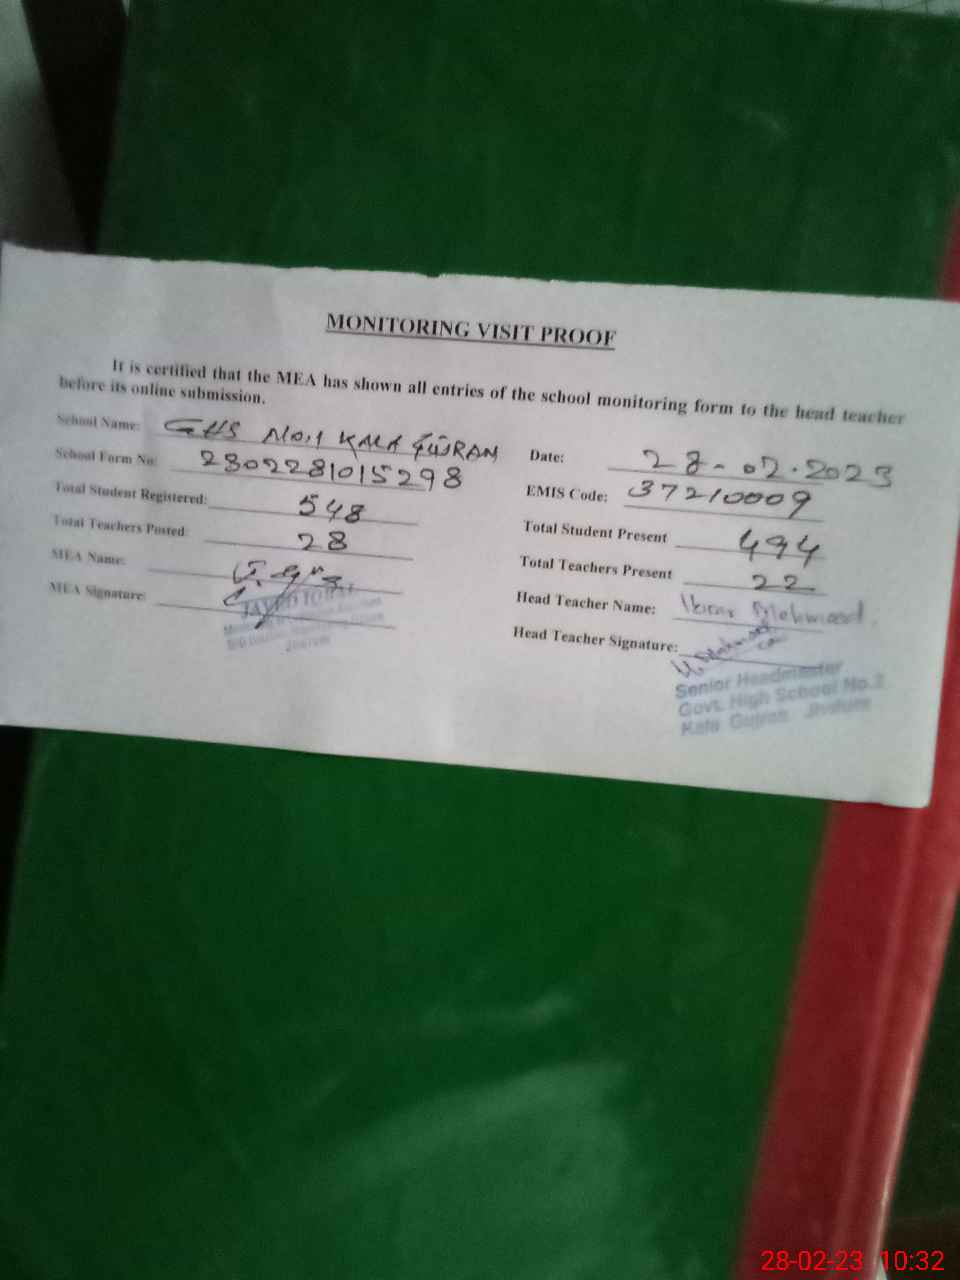 MONITORING VISIT PROOF
It is certified that the MEA has shown all entries of the school monitoring form to the head teacher
before its online submission.
School Name: GHS NO.1 KALA GUJRAN
Date: 28-02.2023
School Form No: 2302281015298
EMIS Code: 37210009
Total Student Registered: 548
Total Student Present 494
Total Teachers Posted: 28
Total Teachers Present 22
MEA Name:
Head Teacher Name: Mehmood
MEA Signature:
Head Teacher Signature:
JAVED IQBAL
Jhelum
Senior Headmaster
Govt. High School No.
Kala Gujran Jhelum
28-02-23 10:32